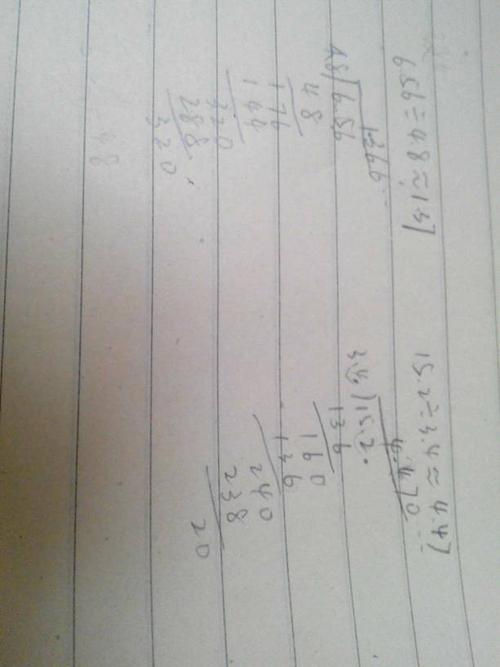 6.56÷4.8≈1.37
1.366...
4.8)6.56
48
176
144
320
288
320
15.2÷3.4≈4.47
4.470...
3.4)15.2
136
160
136
240
238
20